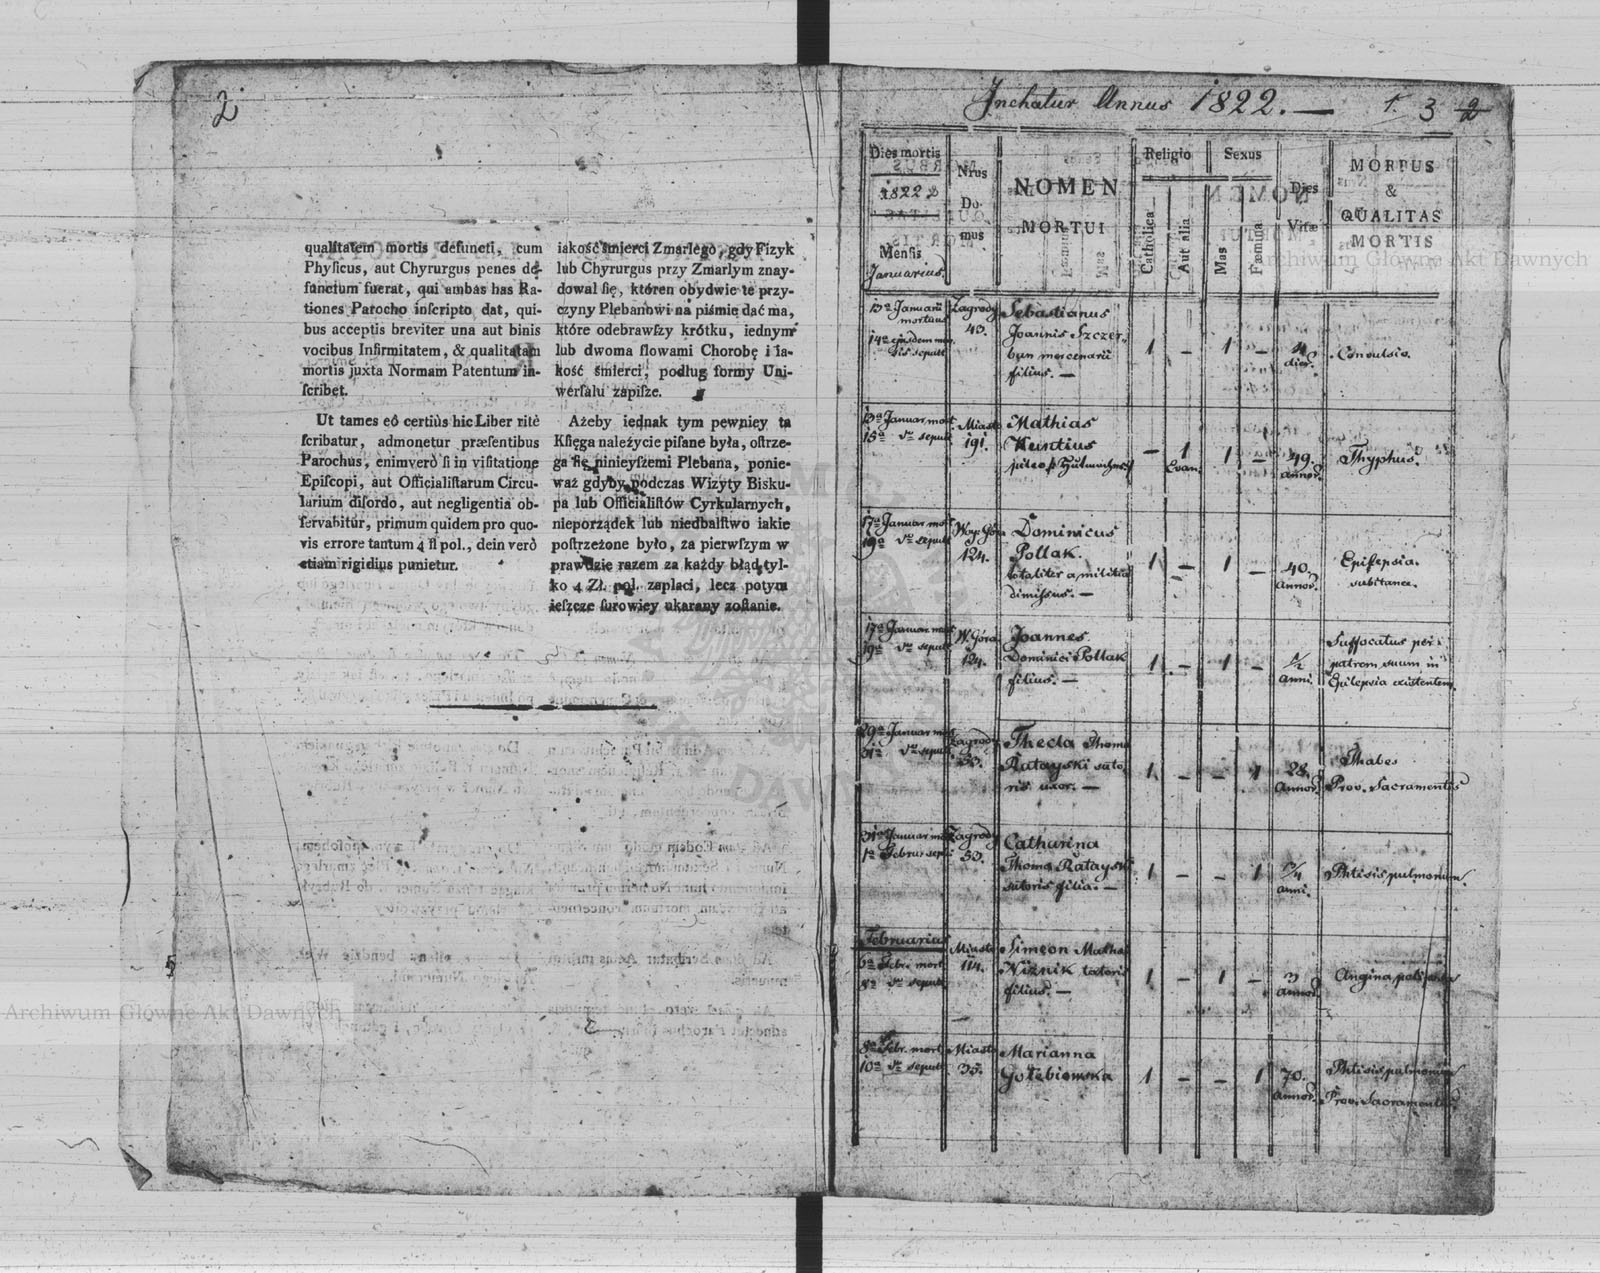 2
qualitatem mortis defuncti, cum
Phyſicus, aut Chyrurgus penes de-
functum fuerat, qui ambas has Ra-
tiones Parocho inſcripto dat, qui-
bus acceptis breviter una aut binis
vocibus Infirmitatem, & qualitatam
mortis juxta Normam Patentum in-
ſcribet.
Ut tames eò certiùs hic Liber ritè
ſcribatur, admonetur præſentibus
Parochus, enimverò ſi in viſitatione
Epiſcopi, aut Officialiſtarum Circu-
larium diſordo, aut negligentia ob-
ſervabitur, primum quidem pro quo-
vis errore tantum 4 fl pol., dein verò
etiam rigidius punietur.
iakość śmierci Zmarlego, gdy Fizyk
lub Chyrurgus przy Zmarlym znay-
dowal ſię, któren obydwie te przy-
czyny Plebanowi na piśmie dać ma,
które odebrawſzy krótku, iednym
lub dwoma ſlowami Chorobę i ia-
kość śmierci, podlug formy Uni-
werſalu zapiſze.
Ażeby iednak tym pewniey ta
Kſięga należycie piſane była, oſtrze-
ga ſię ninieyſzemi Plebana, ponie-
waż gdyby podczas Wizyty Bisku-
pa lub Officialiſtów Cyrkularnych,
nieporządek lub niedbalſtwo iakie
poſtrzeżone było, za pierwſzym w
prawdzie razem za każdy błąd tyl-
ko 4 Zł. pol. zaplaci, lecz potym
ieſzcze ſurowiey ukarany zoſtanie.
Archiwum Główne Akt Dawnych
Inchatur Annus 1822. — 1. 3 2
Dies mortis 1822 Mensis Januarius
Nrus Domus
NOMEN MORTUI
Religio Catholica Aut alia
Sexus Mas Fœmina
Dies Vitæ
MORBUS & QUALITAS MORTIS
Archiwum Główne Akt Dawnych
13a Januarii Zagrody Sebastianus
mortuus 43. Joannis Szczer-
14a ejusdem men- ban mercenarii 1 - 1 - dies. Convulsio.
sis sepult filius. —
13a Januar. mort. Miasto Mathias
15a sepult 191. Kuntius - 1 1 - 49. Thyphus.
Evan. Annor.
17a Januar. mort Dominicus
19a sepult 124. Pollak. 1 - 1 - 40. Epilepsia.
totaliter a militia Annor. substanea.
dimissus. —
17a Januar. mort W. Góra. Joannes Suffocatus per
19a sepult 124. Dominici Pollak 1 - 1 - 1/2 patrem suum in
filius. — anni. Epilepsia existentem.
29a Januar. mort Zagrody Thecla Thoma
31a sepult 53. Ratayski suto- 1 - - 1 28. Thabes
ris uxor. — Annor. Prov. Sacramentis
31a Januar. mort Zagrody Catharina
1a Februar. sepul 53. Thoma Ratayski 1 - - 1 3/4 Phtisis pulmonum.
sutoris filia. — anni.
Februarius Miasto Simeon Mathe
6a Febr. mort 114. Niznik 1 - 1 - 3 Angina
8a sepult filius. — Annor.
8a Febr. mort Miasto Marianna Phtisis pulmonum
10a sepult 35. Gołębiowska 1 - - 1 70. Annor. Prov. Sacramentis